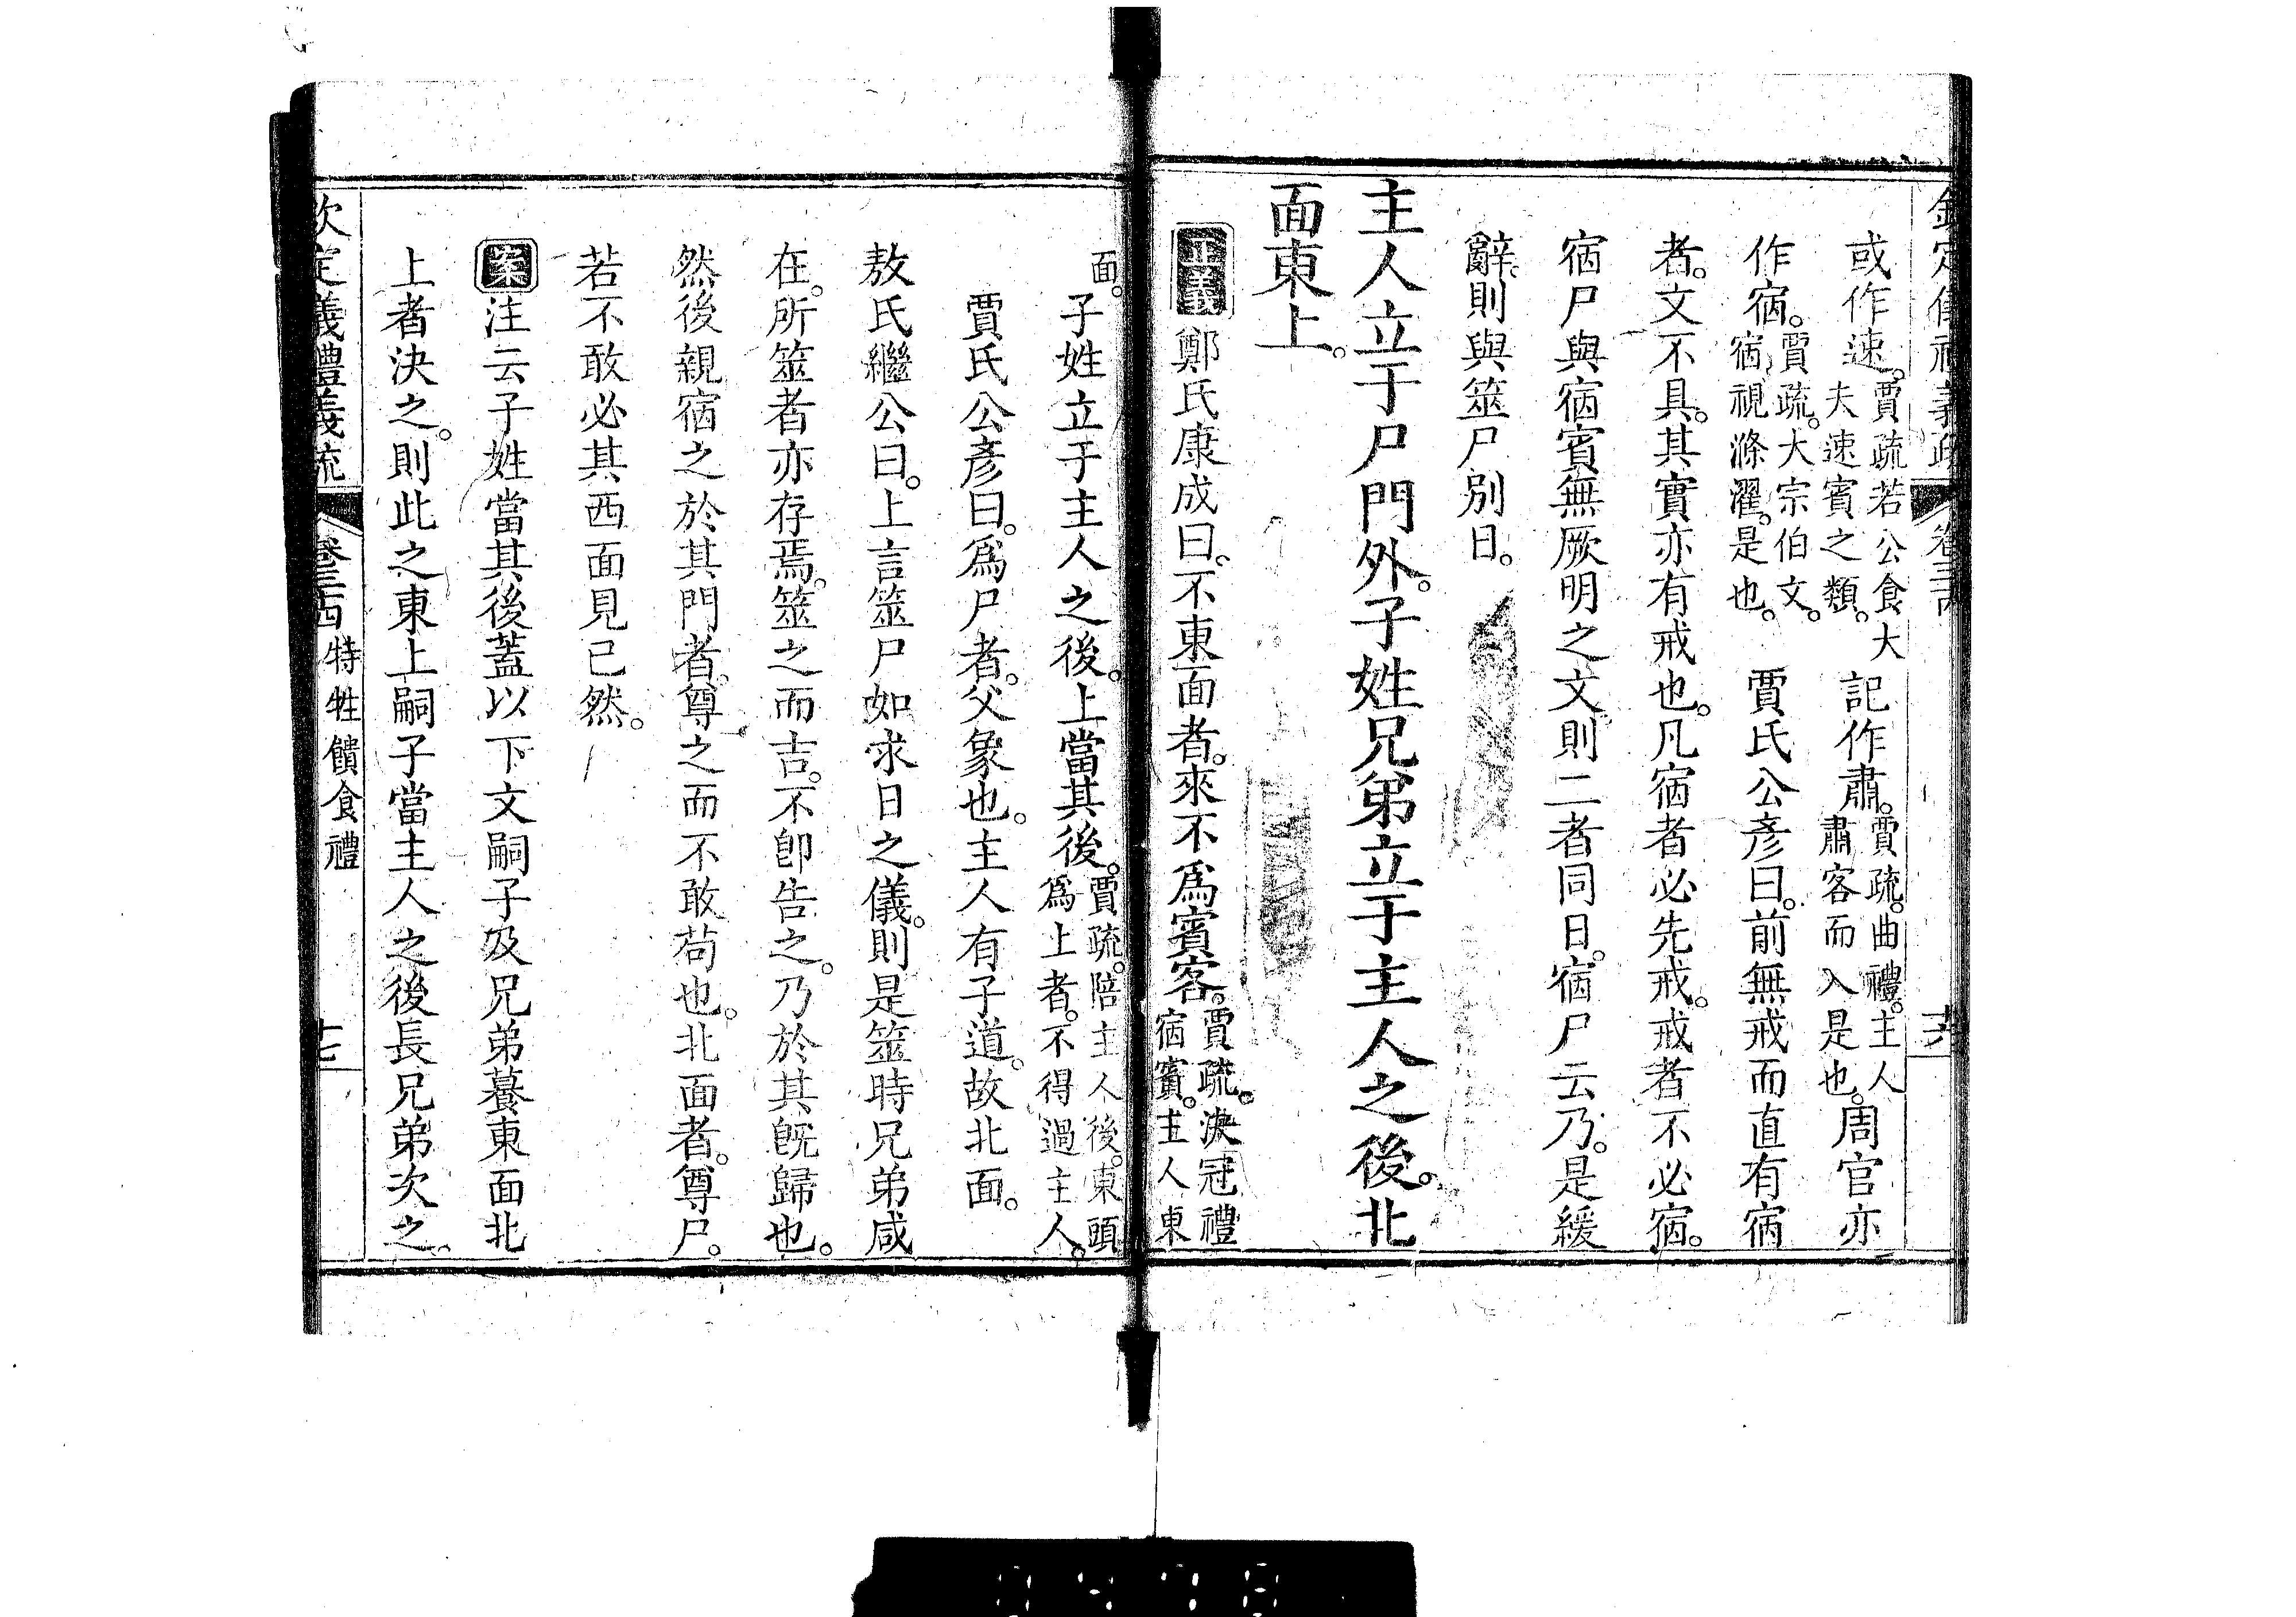 欽定儀禮義疏 卷三十四 十六
或作速。賈疏。若公食大夫速賓之類。記作肅。賈疏。曲禮。主人肅客而入是也。周官亦
作宿。賈疏。大宗伯文。宿視滌濯。是也。賈氏公彥曰。前無戒而直有宿
者。文不具。其實亦有戒也。凡宿者必先戒。戒者不必宿。
宿尸與宿賓無厥明之文。則二者同日。宿尸云乃。是緩
辭。則與筮尸別日。
主人立于尸門外。子姓兄弟立于主人之後。北
面東上。
正義鄭氏康成曰。不東面者。來不為賓客。賈疏。決冠禮宿賓。主人東
面。子姓立于主人之後。上當其後。賈疏。陪主人後。東頭為上者。不得過主人。
賈氏公彥曰。為尸者。父象也。主人有子道。故北面。
敖氏繼公曰。上言筮尸如求日之儀。則是筮時兄弟咸
在。所筮者亦存焉。筮之而吉。不卽告之。乃於其旣歸也。
然後親宿之於其門者。尊之而不敢苟也。北面者。尊尸。
若不敢必其西面見已然。
案注云子姓當其後蓋以下文嗣子及兄弟養東面北
上者決之。則此之東上嗣子當主人之後長兄弟次之。
欽定儀禮義疏 卷三十四 特牲饋食禮 十七